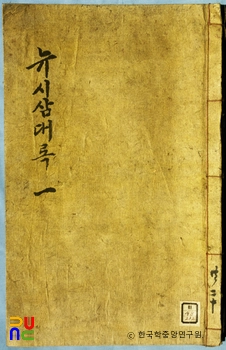 뉴시삼대록 一
共二十
© 한국학중앙연구원